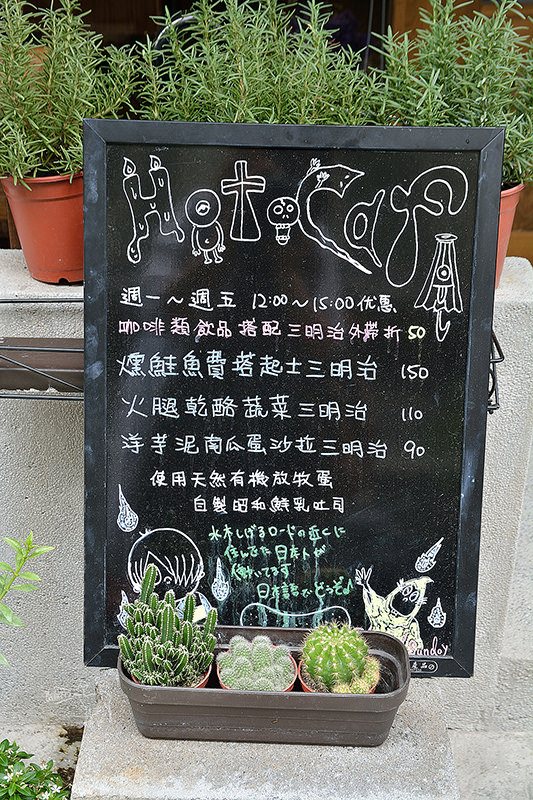 Hot Café
週一～週五 12:00～15:00 优惠
咖啡類飲品搭配三明治外帶折50
燻鮭魚費塔起士三明治 150
火腿乾酪蔬菜三明治 110
洋芋泥南瓜蛋沙拉三明治 90
使用天然有機放牧蛋
自製昭和鮮乳吐司
水木しげるロードの近くに
住んでた日本人が
働いてます
日本語でどうぞ♪
Sunday